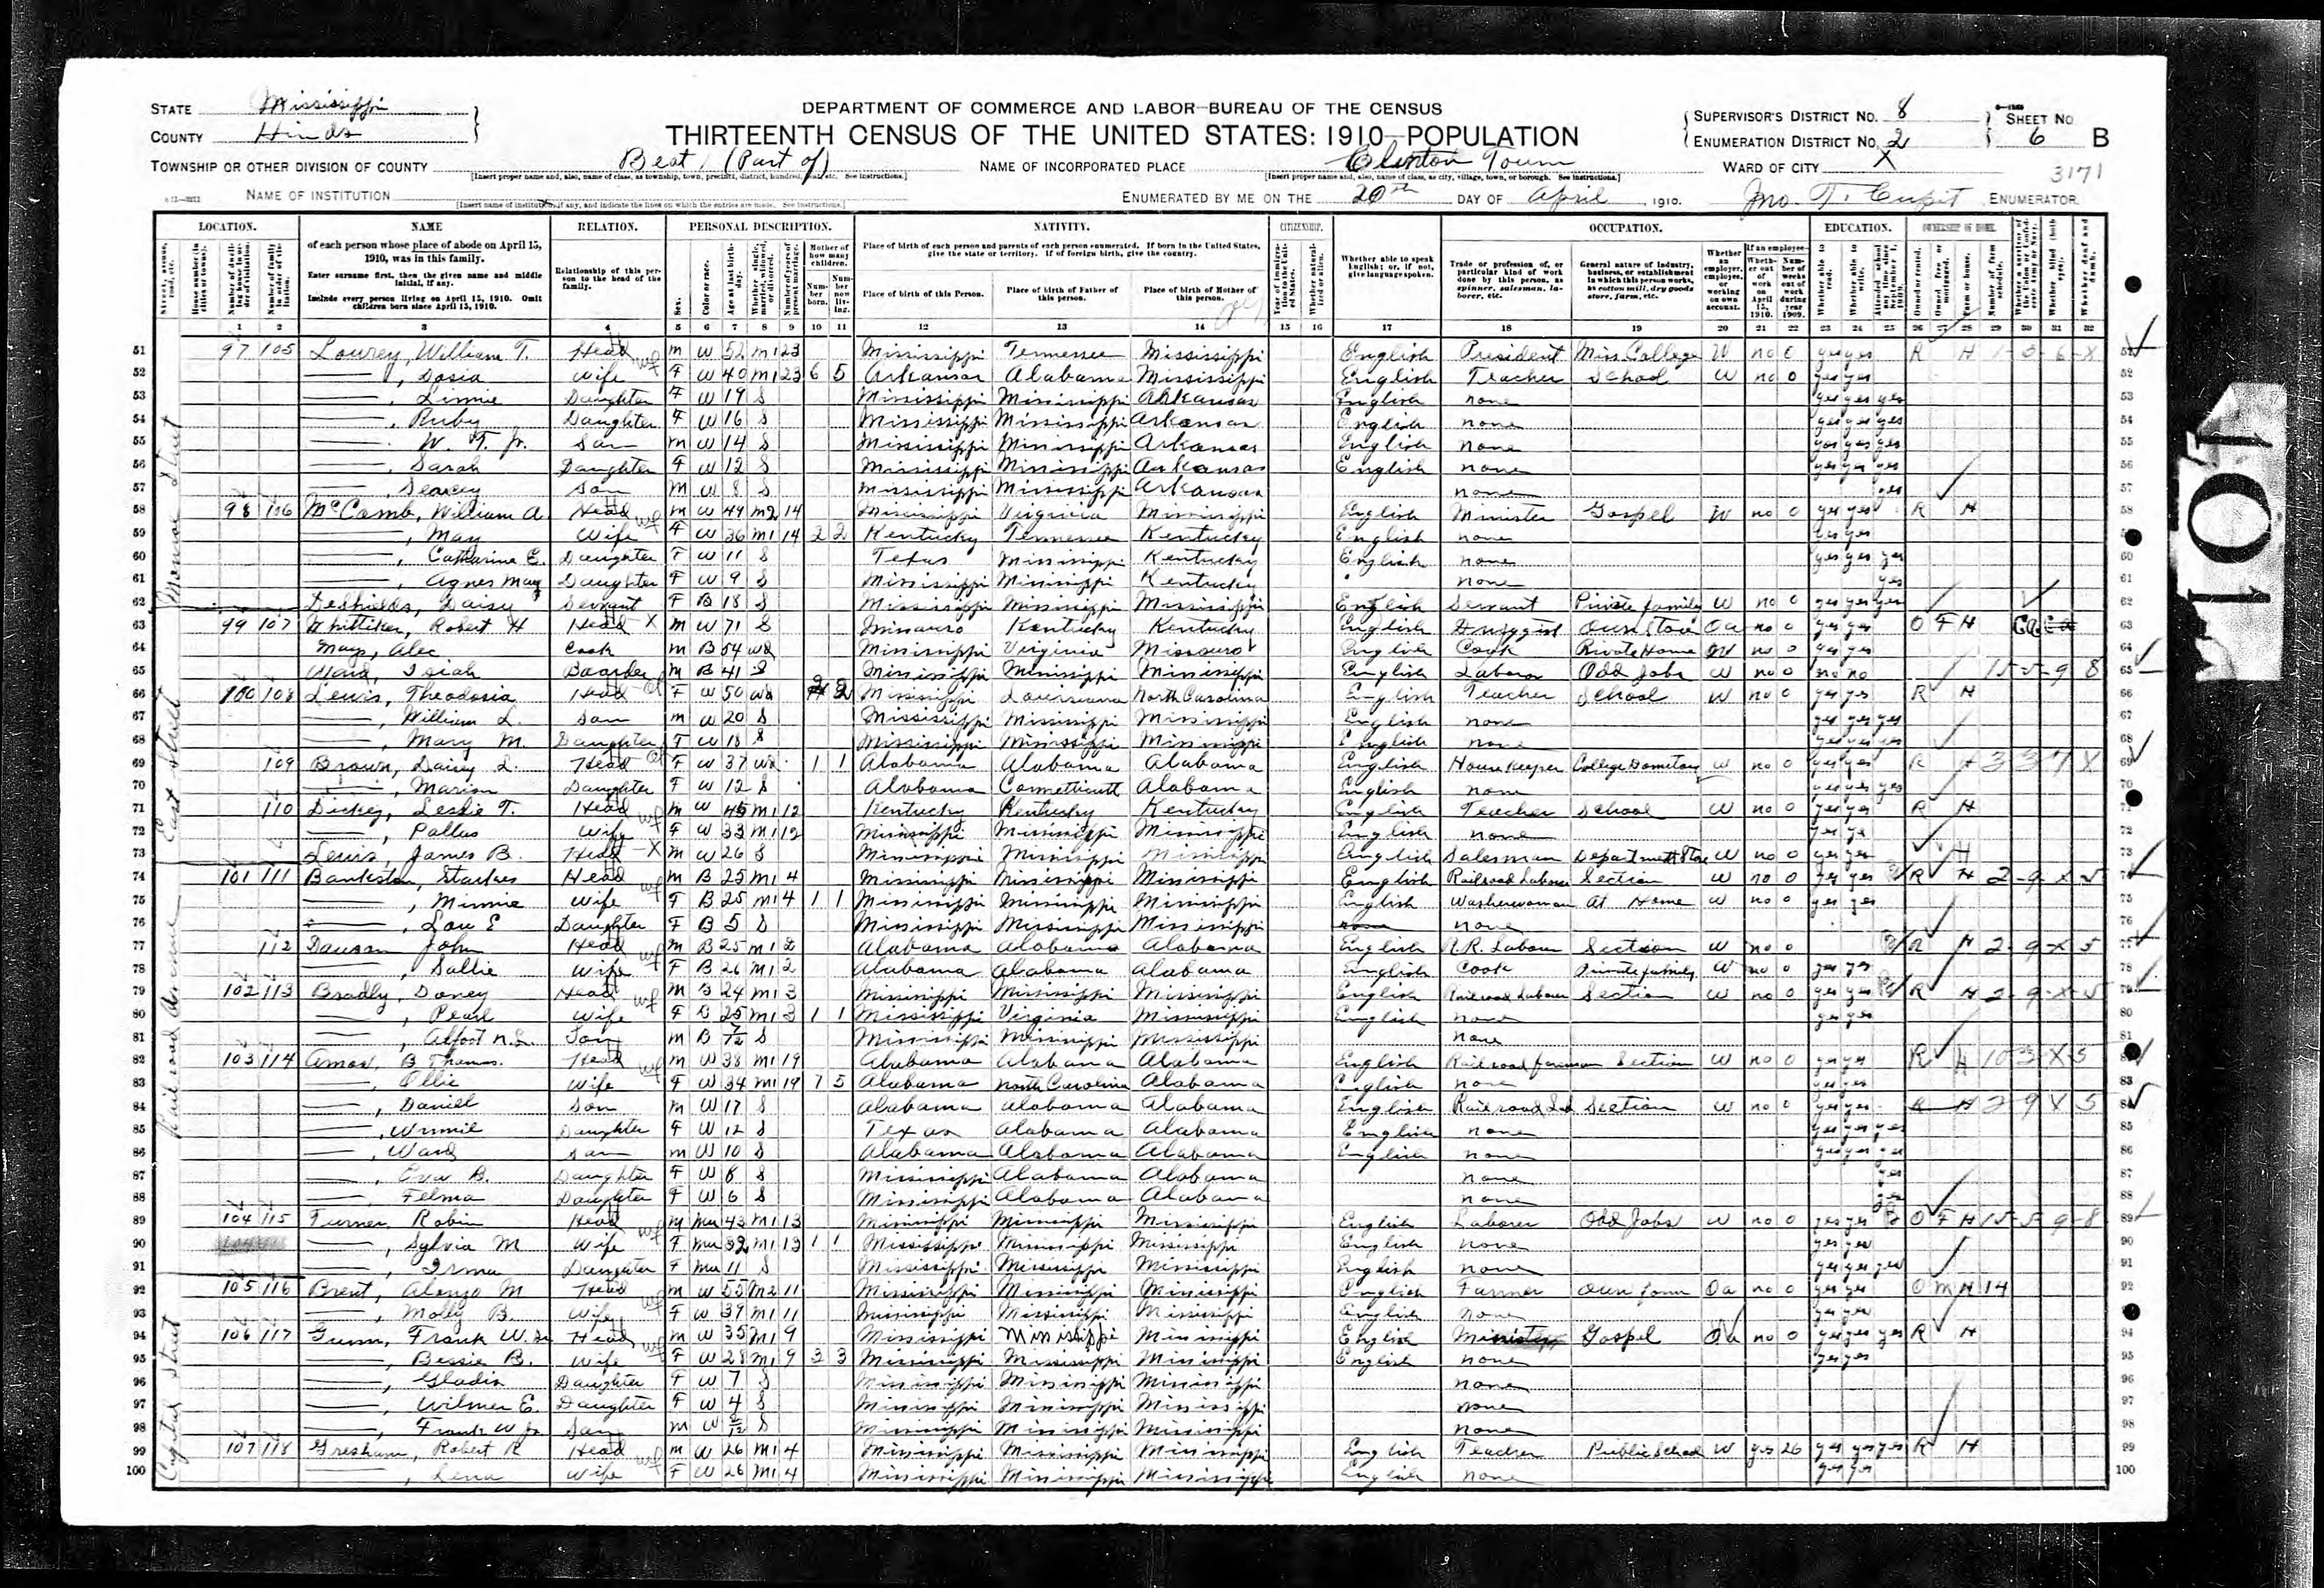 STATE Mississippi
COUNTY Hinds
DEPARTMENT OF COMMERCE AND LABOR—BUREAU OF THE CENSUS
THIRTEENTH CENSUS OF THE UNITED STATES: 1910—POPULATION
SUPERVISOR'S DISTRICT No. 8
ENUMERATION DISTRICT No. 2
SHEET No. 6 B
TOWNSHIP OR OTHER DIVISION OF COUNTY Beat 1 (Part of)
NAME OF INCORPORATED PLACE Clinton Town
WARD OF CITY X
3171
NAME OF INSTITUTION
ENUMERATED BY ME ON THE 20th DAY OF April, 1910. Jno. T. Cupit, ENUMERATOR.
LOCATION. NAME RELATION. PERSONAL DESCRIPTION. NATIVITY. CITIZENSHIP. OCCUPATION. EDUCATION. OWNERSHIP OF HOME.
of each person whose place of abode on April 15, 1910, was in this family.
Enter surname first, then the given name and middle initial, if any.
Include every person living on April 15, 1910. Omit children born since April 15, 1910.
Relationship of this person to the head of the family.
Place of birth of each person and parents of each person enumerated. If born in the United States, give the state or territory. If of foreign birth, give the country.
Place of birth of this Person. Place of birth of Father of this person. Place of birth of Mother of this person.
Whether able to speak English; or, if not, give language spoken.
Trade or profession of, or particular kind of work done by this person, as spinner, salesman, laborer, etc.
General nature of industry, business, or establishment in which this person works, as cotton mill, dry goods store, farm, etc.
1 2 3 4 5 6 7 8 9 10 11 12 13 14 15 16 17 18 19 20 21 22 23 24 25 26 27 28 29 30 31 32
51 97 105 Lowrey, William T. Head M W 52 M1 23 Mississippi Tennessee Mississippi English President Miss College W no 0 yes yes R H
52 ——, Dosia Wife F W 40 M1 23 6 5 Arkansas Alabama Mississippi English Teacher School W no 0 yes yes
53 ——, Linnie Daughter F W 19 S Mississippi Mississippi Arkansas English none yes yes yes
54 ——, Ruby Daughter F W 16 S Mississippi Mississippi Arkansas English none yes yes yes
55 ——, W. T. Jr. Son M W 14 S Mississippi Mississippi Arkansas English none yes yes yes
56 ——, Sarah Daughter F W 12 S Mississippi Mississippi Arkansas English none yes yes yes
57 ——, Searcy Son M W 8 S Mississippi Mississippi Arkansas none yes
58 98 106 McComb, William A. Head M W 49 M2 14 Mississippi Virginia Mississippi English Minister Gospel W no 0 yes yes R H
59 ——, May Wife F W 36 M1 14 2 2 Kentucky Tennessee Kentucky English none yes yes
60 ——, Catharine E. Daughter F W 11 S Texas Mississippi Kentucky English none yes yes yes
61 ——, Agnes May Daughter F W 9 S Mississippi Mississippi Kentucky none yes
62 Deshields, Daisy Servant F B 18 S Mississippi Mississippi Mississippi English Servant Private family W no 0 yes yes yes
63 99 107 Whittiker, Robert H Head X M W 71 S Missouri Kentucky Kentucky English Druggist Own Store Oa no 0 yes yes O F H CA
64 Mays, Alec Cook M B 54 Wd Mississippi Virginia Missouri English Cook Private Home W no 0 yes yes
65 Ward, Isiah Boarder M B 41 S Mississippi Mississippi Mississippi English Laborer Odd Jobs W no 0 no no
66 100 108 Lewis, Theodosia Head F W 50 Wd 2 2 Mississippi Louisiana North Carolina English Teacher School W no 0 yes yes R H
67 ——, William L. Son M W 20 S Mississippi Mississippi Mississippi English none yes yes yes
68 ——, Mary M. Daughter F W 18 S Mississippi Mississippi Mississippi English none yes yes yes
69 109 Brown, Daisy L. Head F W 37 Wd 1 1 Alabama Alabama Alabama English House Keeper College Dometory W no 0 yes yes R H
70 ——, Marion Daughter F W 12 S Alabama Connetticutt Alabama English none yes yes yes
71 110 Dickey, Leslie T. Head M W 45 M1 12 Kentucky Kentucky Kentucky English Teacher School W no 0 yes yes R H
72 ——, Pallas Wife F W 33 M1 12 Mississippi Mississippi Mississippi English none yes yes
73 Lewis, James B. Head X M W 26 S Mississippi Mississippi Mississippi English Salesman Department Store W no 0 yes yes H
74 101 111 Bankston, Starkes Head M B 25 M1 4 Mississippi Mississippi Mississippi English Railroad Laborer Section W no 0 yes yes R H
75 ——, Minnie Wife F B 25 M1 4 1 1 Mississippi Mississippi Mississippi English Washerwoman At Home W no 0 yes yes
76 ——, Lou E Daughter F B 5 S Mississippi Mississippi Mississippi none
77 112 Dawson John Head M B 25 M1 2 Alabama Alabama Alabama English R.R. Laborer Section W no 0 R H
78 ——, Sallie Wife F B 26 M1 2 Alabama Alabama Alabama English Cook Private family W no 0 yes yes
79 102 113 Bradly, Doney Head M B 24 M1 3 Mississippi Mississippi Mississippi English Railroad Laborer Section W no 0 yes yes R H
80 ——, Pearl Wife F B 25 M1 3 1 1 Mississippi Virginia Mississippi English none yes yes
81 ——, Son M B S Mississippi Mississippi Mississippi none
82 103 114 Amos, B Thomas. Head M W 38 M1 19 Alabama Alabama Alabama English Railroad foreman Section W no 0 yes yes R H
83 ——, Ollie Wife F W 34 M1 19 7 5 Alabama North Carolina Alabama English none yes yes
84 ——, Daniel Son M W 17 S Alabama Alabama Alabama English Railroad Lab Section W no 0 yes yes
85 ——, Winnie Daughter F W 12 S Texas Alabama Alabama English none yes yes yes
86 ——, Ward Son M W 10 S Alabama Alabama Alabama English none yes yes yes
87 ——, Eva B. Daughter F W 8 S Mississippi Alabama Alabama none yes
88 ——, Felma Daughter F W 6 S Mississippi Alabama Alabama none yes
89 104 115 Turner, Robin Head M Mu 43 M1 13 Mississippi Mississippi Mississippi English Laborer Odd Jobs W no 0 yes yes O F H
90 ——, Sylvia M Wife F Mu 32 M1 13 1 1 Mississippi Mississippi Mississippi English none yes yes
91 ——, Irma Daughter F Mu 11 S Mississippi Mississippi Mississippi English none yes yes yes
92 105 116 Brent, Alonzo M Head M W 55 M2 11 Mississippi Mississippi Mississippi English Farmer Own farm Oa no 0 yes yes O M H 14
93 ——, Molly B. Wife F W 39 M1 11 Mississippi Mississippi Mississippi English none yes yes
94 106 117 Gunn, Frank W. Sr Head M W 35 M1 9 Mississippi Mississippi Mississippi English Minister Gospel Oa no 0 yes yes yes R H
95 ——, Bessie B. Wife F W 28 M1 9 3 3 Mississippi Mississippi Mississippi English none yes yes
96 ——, Gladis Daughter F W 7 S Mississippi Mississippi Mississippi none
97 ——, Wilmer E. Daughter F W 4 S Mississippi Mississippi Mississippi none
98 ——, Frank W Jr Son M W S Mississippi Mississippi Mississippi none
99 107 118 Gresham, Robert R Head M W 26 M1 4 Mississippi Mississippi Mississippi English Teacher Public School W yes 26 yes yes yes R H
100 ——, Lena Wife F W 26 M1 4 Mississippi Mississippi Mississippi English none yes yes
Monroe Street
East Street
Railroad Avenue
Capital Street
101